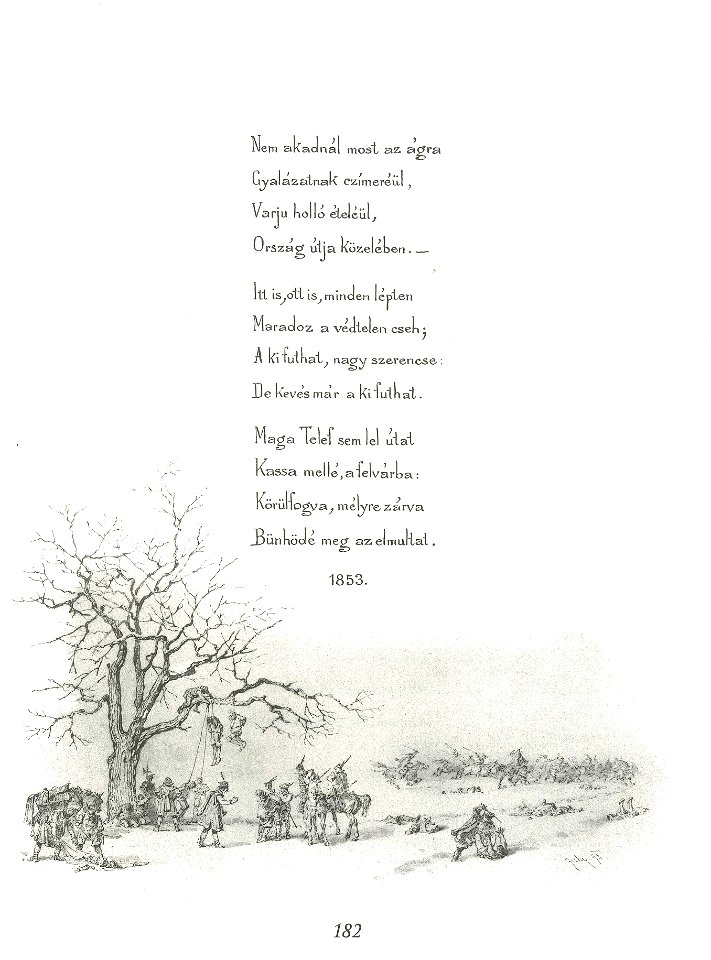 Nem akadnál most az ágra
Gyalázatnak czímeréül,
Varju holló ételéül,
Ország útja közelében. —
Itt is, ott is, minden lépten
Maradoz a védtelen cseh;
A ki futhat, nagy szerencse:
De kevés már a ki futhat.
Maga Telef sem lel útat
Kassa mellé, a felvárba:
Körülfogva, mélyre zárva
Bünhödé meg az elmultat.
1853.
182